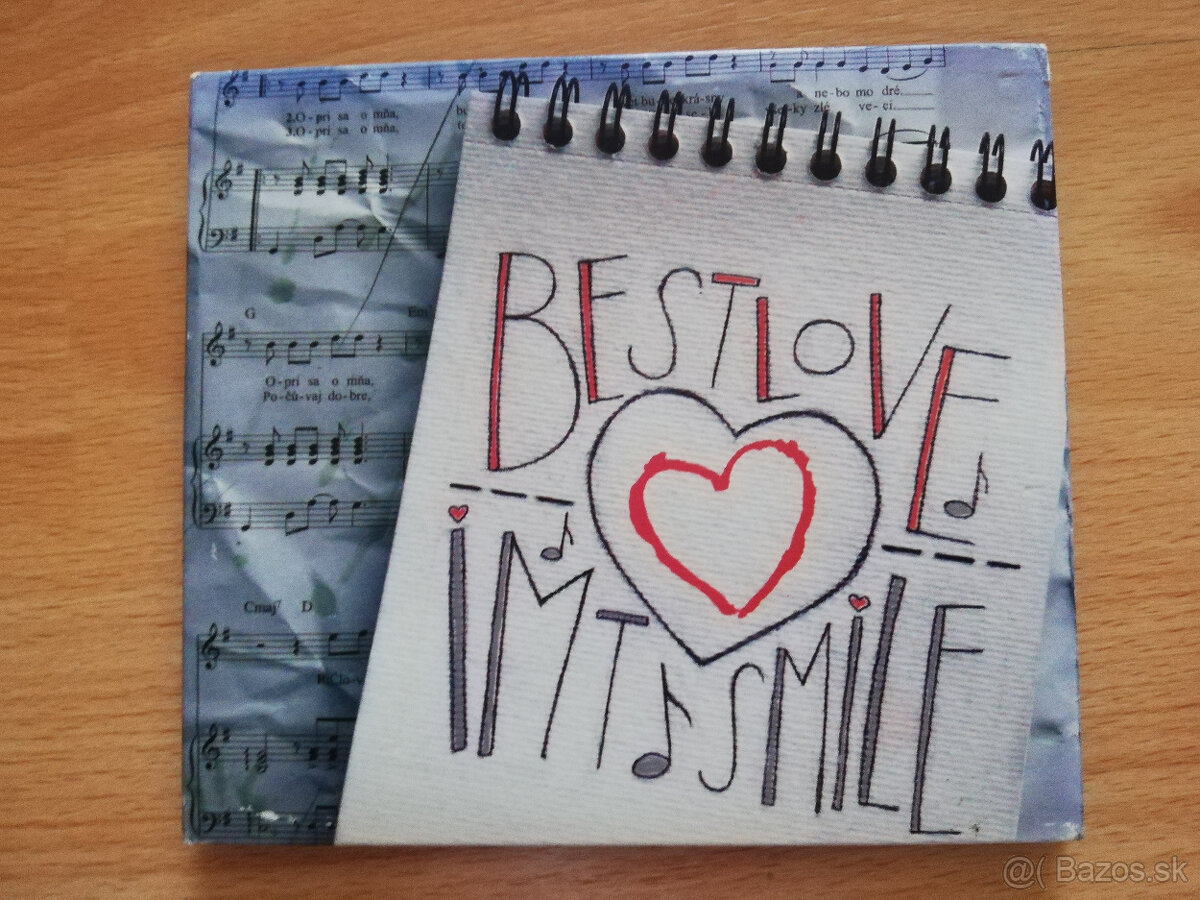 2.O-pri sa o mňa,
3.O-pri sa o mňa,
a ne-bo mo dré.
zlé ve-ci.
G
Em
O-pri sa o mňa,
Po-čú-vaj do-bre,
Cmaj7 D
BEST LOVE
IMT SMILE
@( Bazos.sk